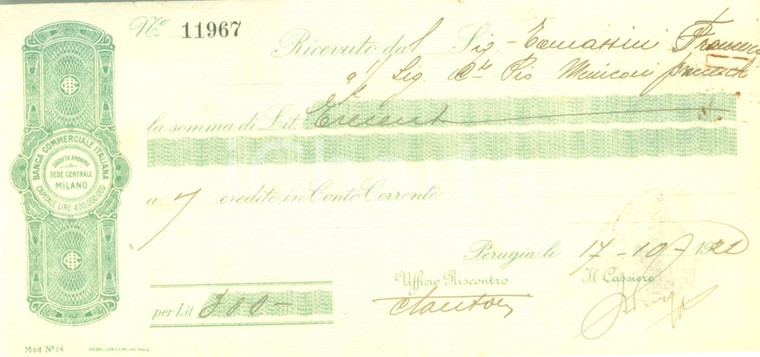 No 11967
Ricevuto dal Sig. Tomassini Francesco
Sig. Pio Meniconi
la somma di Lit. Trecento
BANCA COMMERCIALE ITALIANA
SOCIETÀ ANONIMA
SEDE CENTRALE
MILANO
CAPITALE LIRE 400.000.000
a credito in Conto Corrente
Perugia li 17-10-1921
Ufficio Riscontro Il Cassiere
per Lit 300-
Mod. No 14